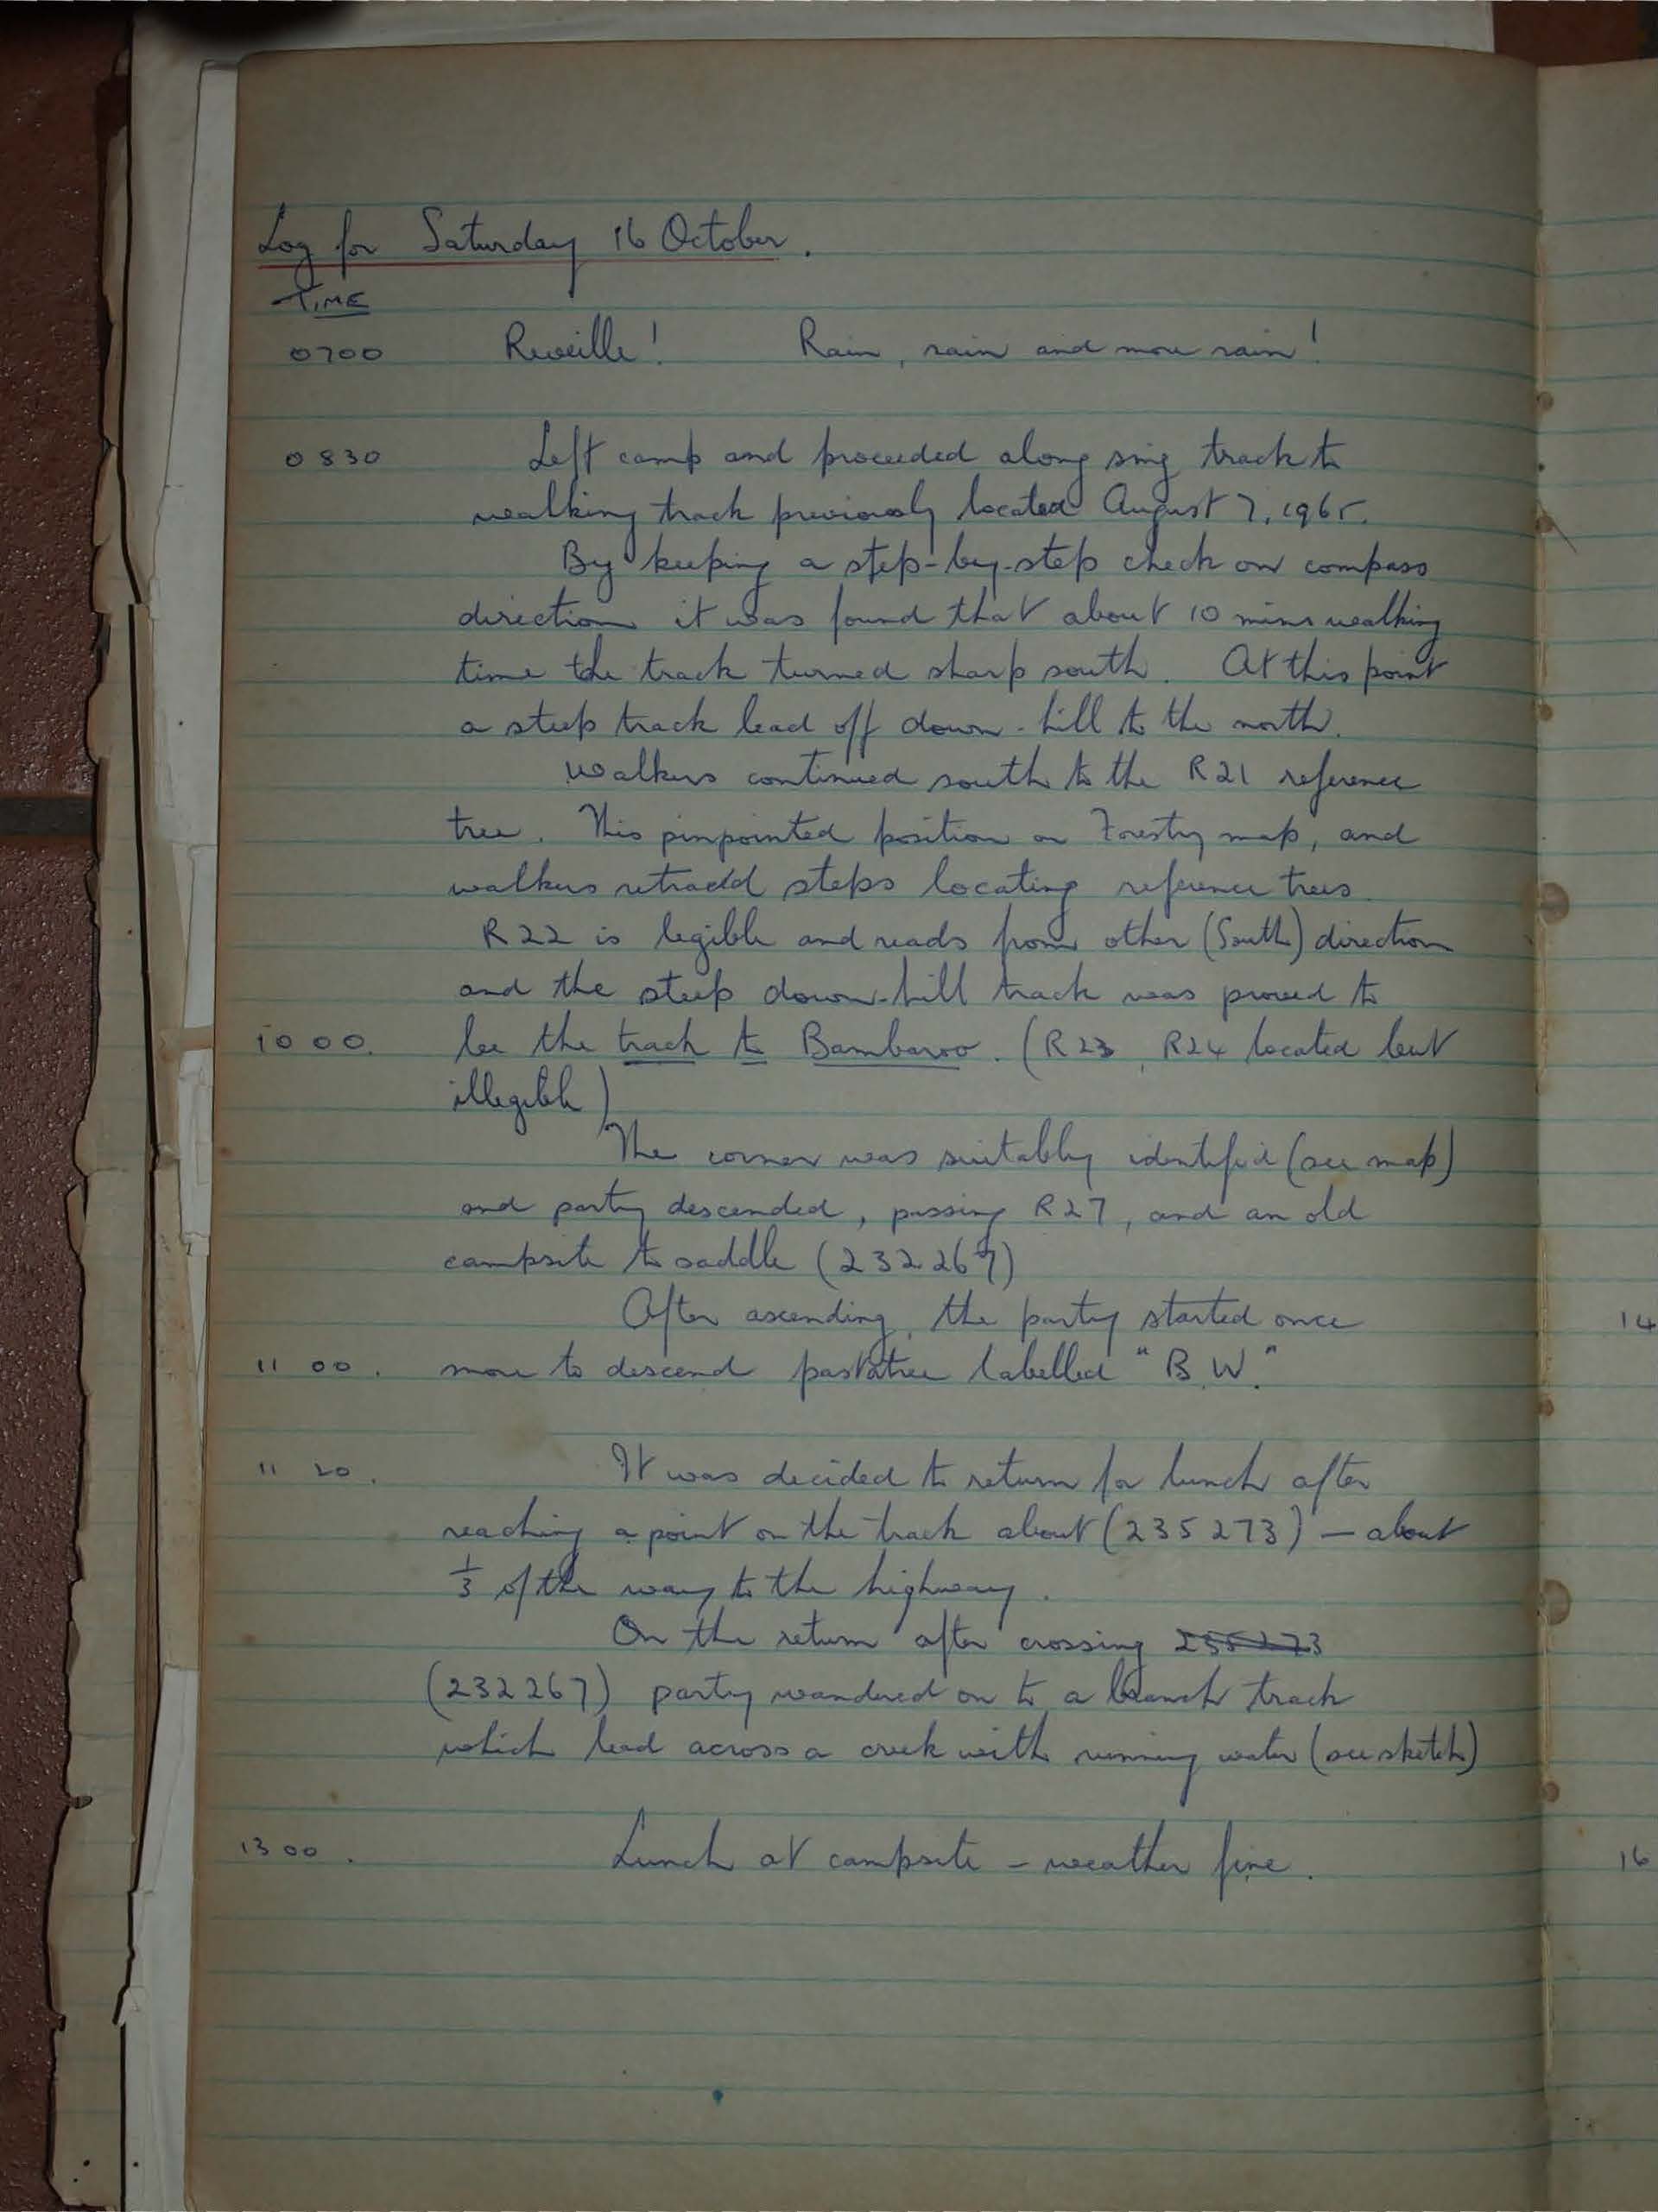 Log for Saturday 16 October.
TIME
0700 Reveille! Rain, rain and more rain!
0830 Left camp and proceeded along snig track to
walking track previously located August 7, 1965.
By keeping a step-by-step check on compass
direction it was found that about 10 mins walking
time the track turned sharp south. At this point
a steep track lead off down-hill to the north.
Walkers continued south to the R21 reference
tree. This pinpointed position on Forestry map, and
walkers retraced steps locating reference trees.
R22 is legible and reads from other (South) direction
and the steep down-hill track was proved to
1000. be the track to Bambaroo. (R23, R24 located but
illegible)
The corner was suitably identified (see map)
and party descended, passing R27, and an old
campsite to saddle (232267)
After ascending, the party started once
1100. more to descend past a tree labelled "B.W."
1120. It was decided to return for lunch after
reaching a point on the track about (235273) — about
1/3 of the way to the highway.
On the return after crossing 235273
(232267) party wandered on to a branch track
which lead across a creek with running water (see sketch)
1300. Lunch at campsite - weather fine.
14
16